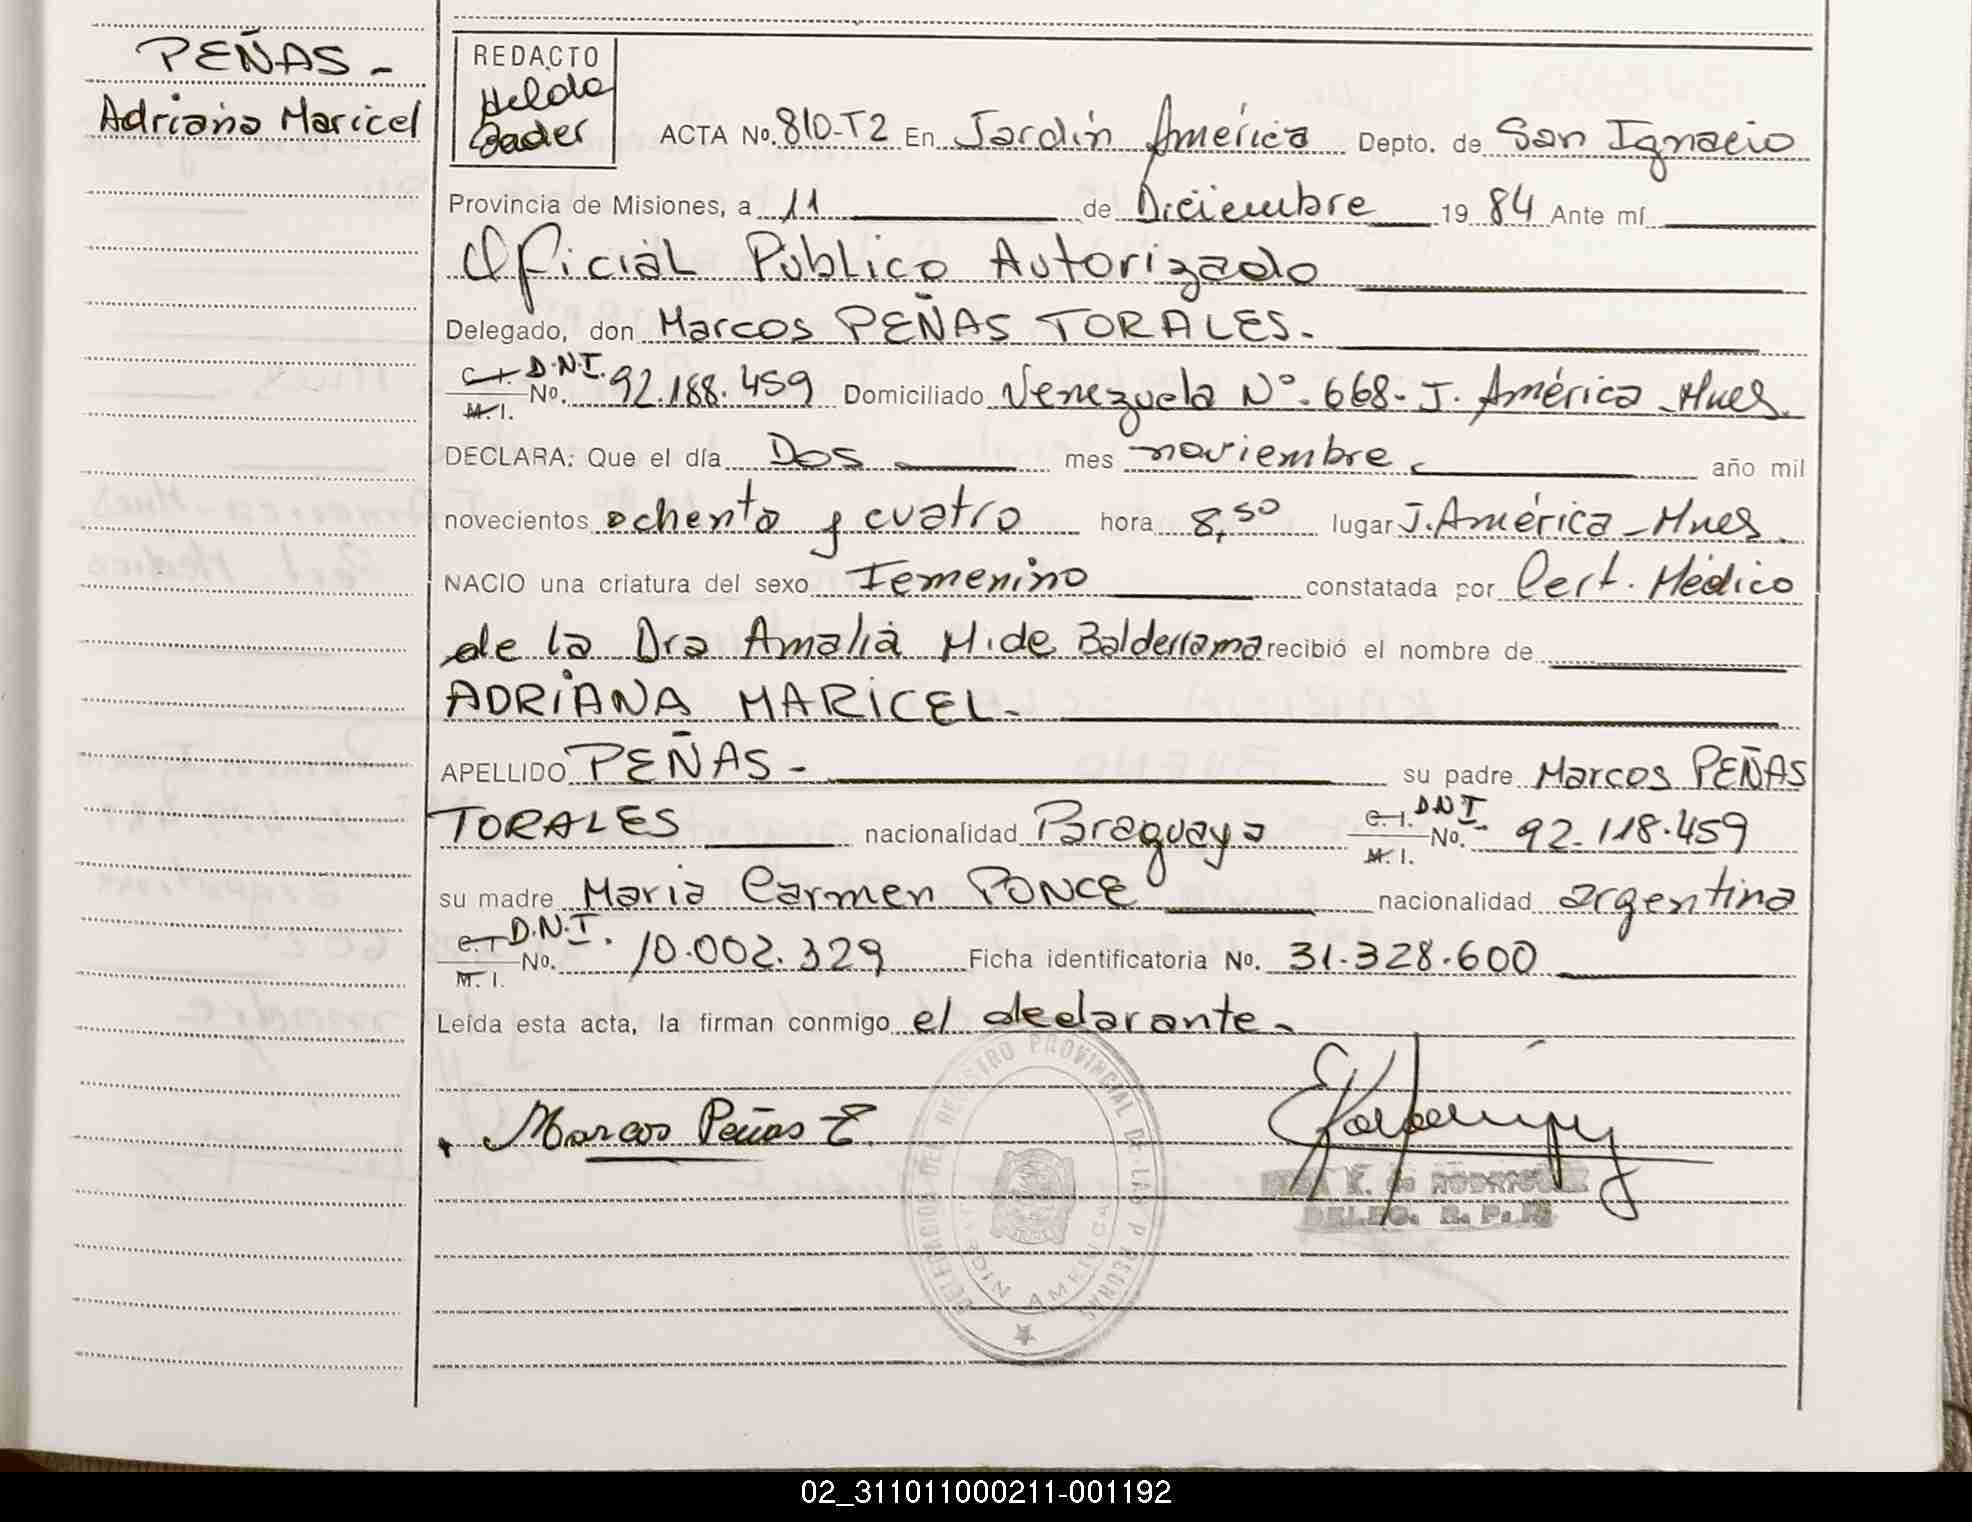 PEÑAS -
Adriana Maricel
REDACTO
Helda
Bader
ACTA No. 810-T2 En Jardín América Depto. de San Ignacio
Provincia de Misiones, a 11 de Diciembre 19 84 Ante mí
Oficial Público Autorizado
Delegado, don Marcos PEÑAS TORALES.
C.I. D.N.I.
M.I. No. 92.188.459 Domiciliado Venezuela Nº. 668- J. América - Mnes.
DECLARA: Que el día Dos mes noviembre año mil
novecientos ochenta y cuatro hora 8,50 lugar J. América - Mnes.
NACIO una criatura del sexo Femenino constatada por Cert. Médico
de la Dra Amalia M. de Balderrama recibió el nombre de
ADRIANA MARICEL-
APELLIDO PEÑAS - su padre Marcos PEÑAS
TORALES nacionalidad Paraguaya C.I. D.N.I. M.I. No. 92.118.459
su madre Maria Carmen PONCE nacionalidad argentina
C.I. D.N.I.
M.I. No. 10.002.329 Ficha identificatoria No. 31.328.600
Leída esta acta, la firman conmigo el declarante-
Marcos Peñas T.
DELEGACION DEL REGISTRO PROVINCIAL DE LAS PERSONAS
JARDIN AMERICA
K. de RODRIGUEZ
DELEG. R. P. P.
02_311011000211-001192